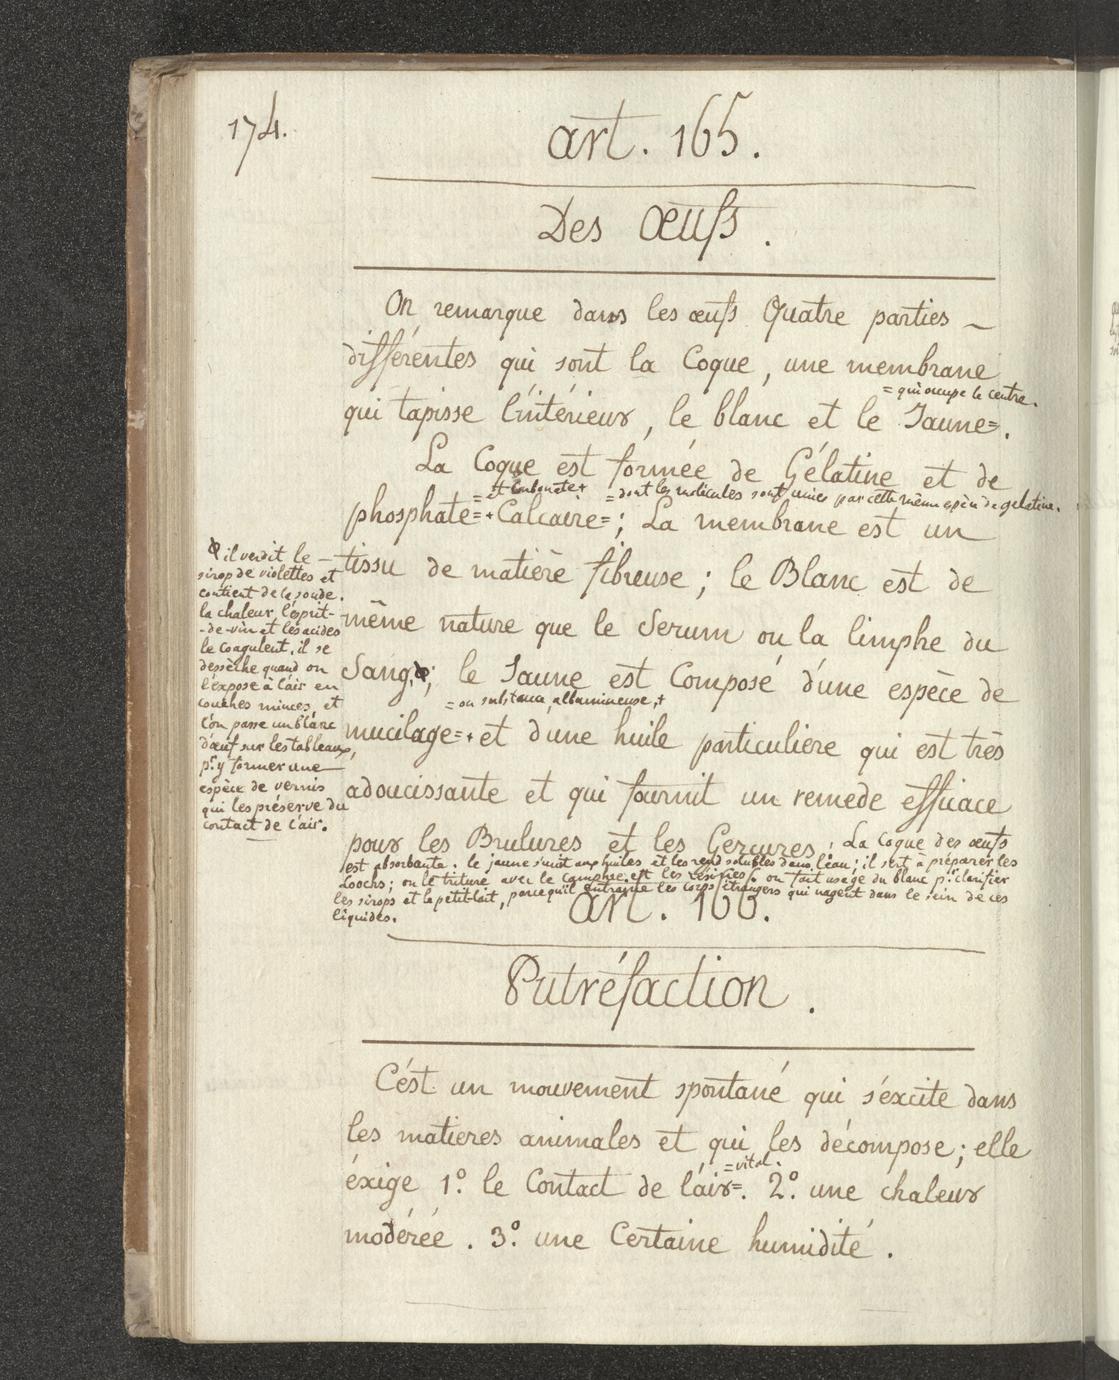 174.
art. 165.
Des Œufs.
On remarque dans les œufs Quatre parties
différentes qui sont la Coque, une membrane
= qui occupe le centre.
qui tapisse l'intérieur, le blanc et le Jaune=.
La Coque est formée de Gélatine et de
= et Carbonate+ = dont les molécules sont unies par cette même espèce de gelatine.
phosphate=+Calcaire=; La membrane est un
tissu de matière fibreuse; le Blanc est de
même nature que le Serum ou la limphe du
Sang; le Jaune est Composé d'une espèce de
= ou substance albumineuse,+
mucilage=+et d'une huile particuliere qui est très
adoucissante et qui fournit un remede efficace
pour les Brulures et les Gerçures; La Coque des œufs
est absorbante. le jaune s'unit aux huiles et les rend solubles dans l'eau; il sert à préparer les
Loochs; on le triture avec le camphre et les résines. on fait usage du blanc pr. clarifier
les sirops et le petit-lait, parcequ'il entraîne les corps étrangers qui nagent dans le sein de ces
liquides.
il verdit le
sirop de violettes et
contient de la soude.
la chaleur, l'esprit-
-de-vin et les acides
le coagulent, il se
dessèche quand on
l'expose à l'air en
couches minces, et
l'on passe un blanc
d'œuf sur les tableaux,
pr. y former une
espèce de vernis
qui les préserve du
contact de l'air.
art. 166.
Putréfaction.
C'ést un mouvement spontané qui s'éxcite dans
les matieres animales et qui les décompose; elle
= vital.
éxige 1º. le Contact de l'air=. 2º. une chaleur
modérée. 3º. une Certaine humidité.